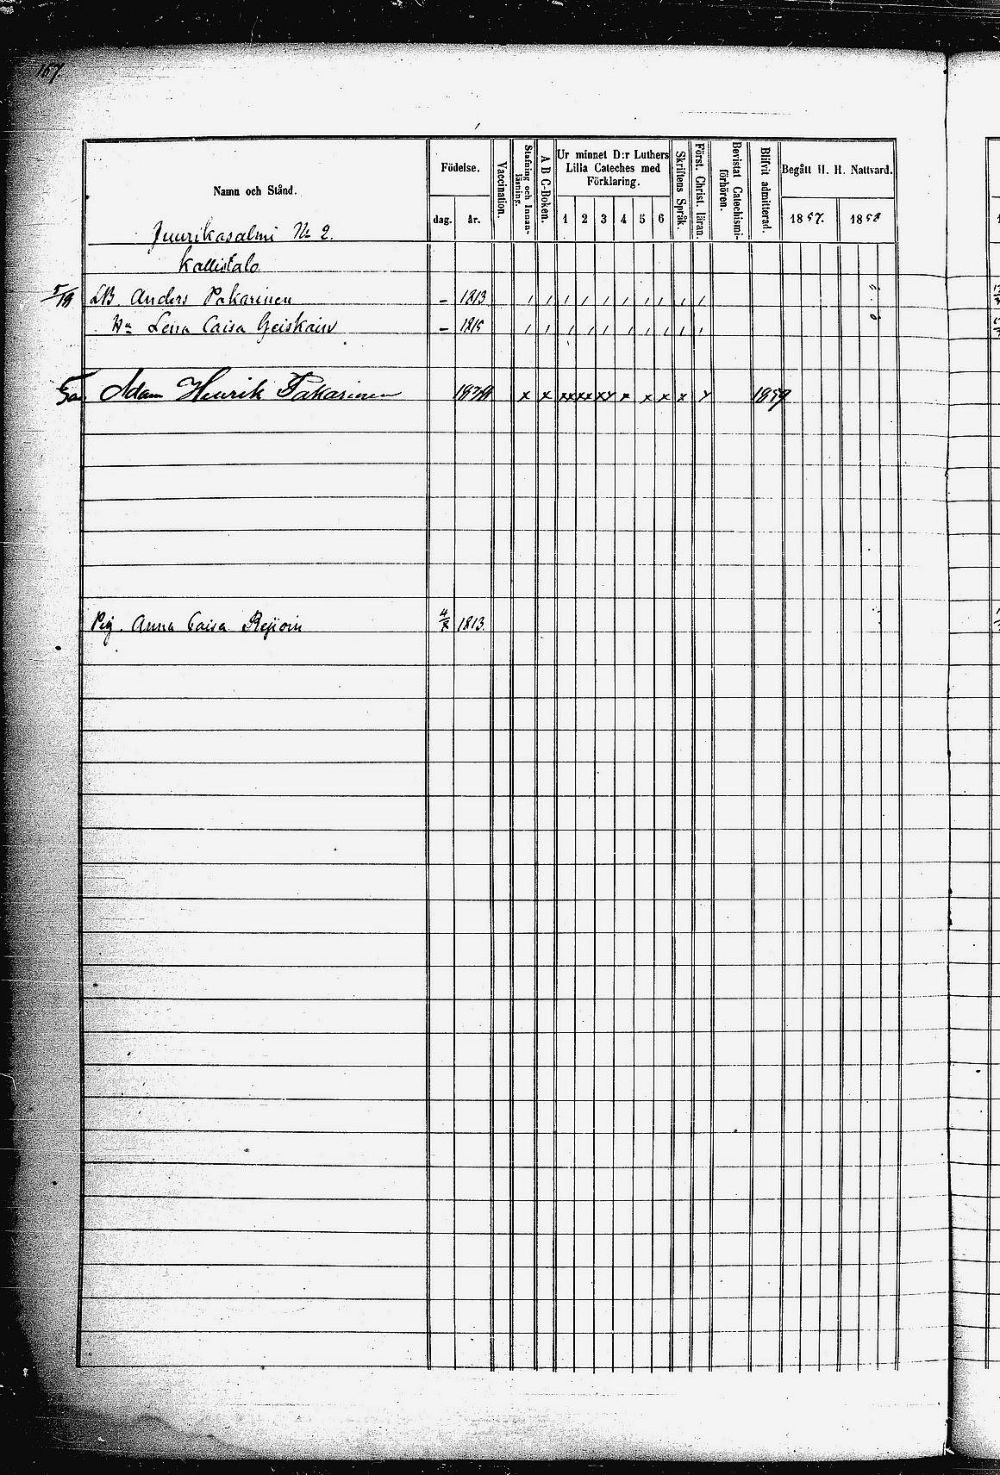 167.
Namn och Stånd.
Födelse.
dag. år.
Vaccination.
Stafning och Innan-läsning.
A B C-Boken.
Ur minnet D:r Luthers
Lilla Cateches med
Förklaring.
1 2 3 4 5 6
Skriftens Språk.
Först. Christ. läran.
Bevistat Catechismi-förhören.
Blifvit admitterad.
Begått H. H. Nattvard.
1857. 1858
Juurikasalmi No 2.
Kallistalo
5/19 LB. Anders Pakarinen – 1813
Hu Lena Caisa Geiskain – 1815
Adam Henrik Pakarinen x x xx xx xx x x x x x 1859
Pig. Anna Caisa Rejjoin 1813.